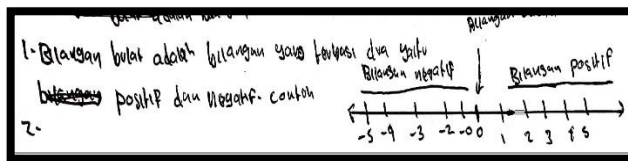 1. Bilangan bulat adalah bilangan yang terbagi dua yaitu
positif dan negatif. contoh
Bilangan negatif
Bilangan positif
-5 -4 -3 -2 -0 0 1 2 3 4 5
2.